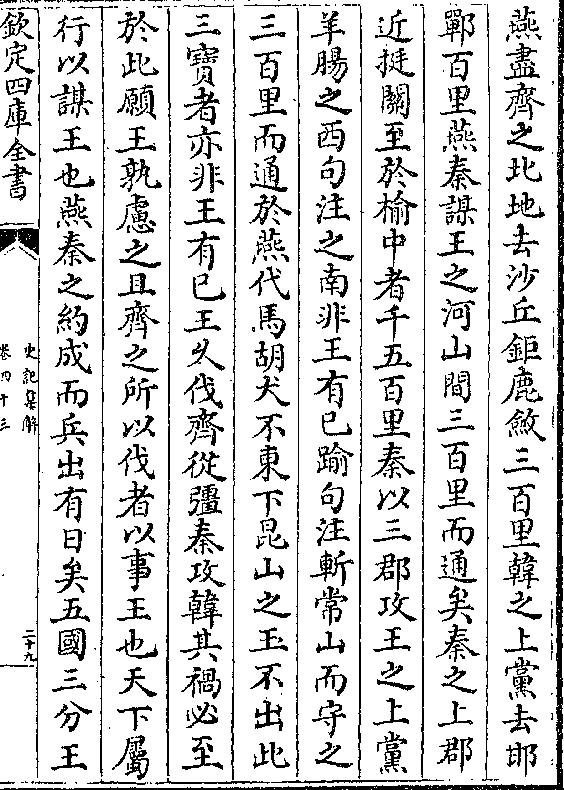 燕盡齊之北地去沙丘鉅鹿斂三百里韓之上黨去邯
鄲百里燕秦謀王之河山間三百里而通矣秦之上郡
近挺關至於榆中者千五百里秦以三郡攻王之上黨
羊腸之西句注之南非王有已踰句注斬常山而守之
三百里而通於燕代馬胡犬不東下昆山之玉不出此
三寶者亦非王有已王乆伐齊從彊秦攻韓其禍必至
於此願王孰慮之且齊之所以伐者以事王也天下屬
行以謀王也燕秦之約成而兵出有日矣五國三分王
欽定四庫全書
史記集解
卷四十三
二十九